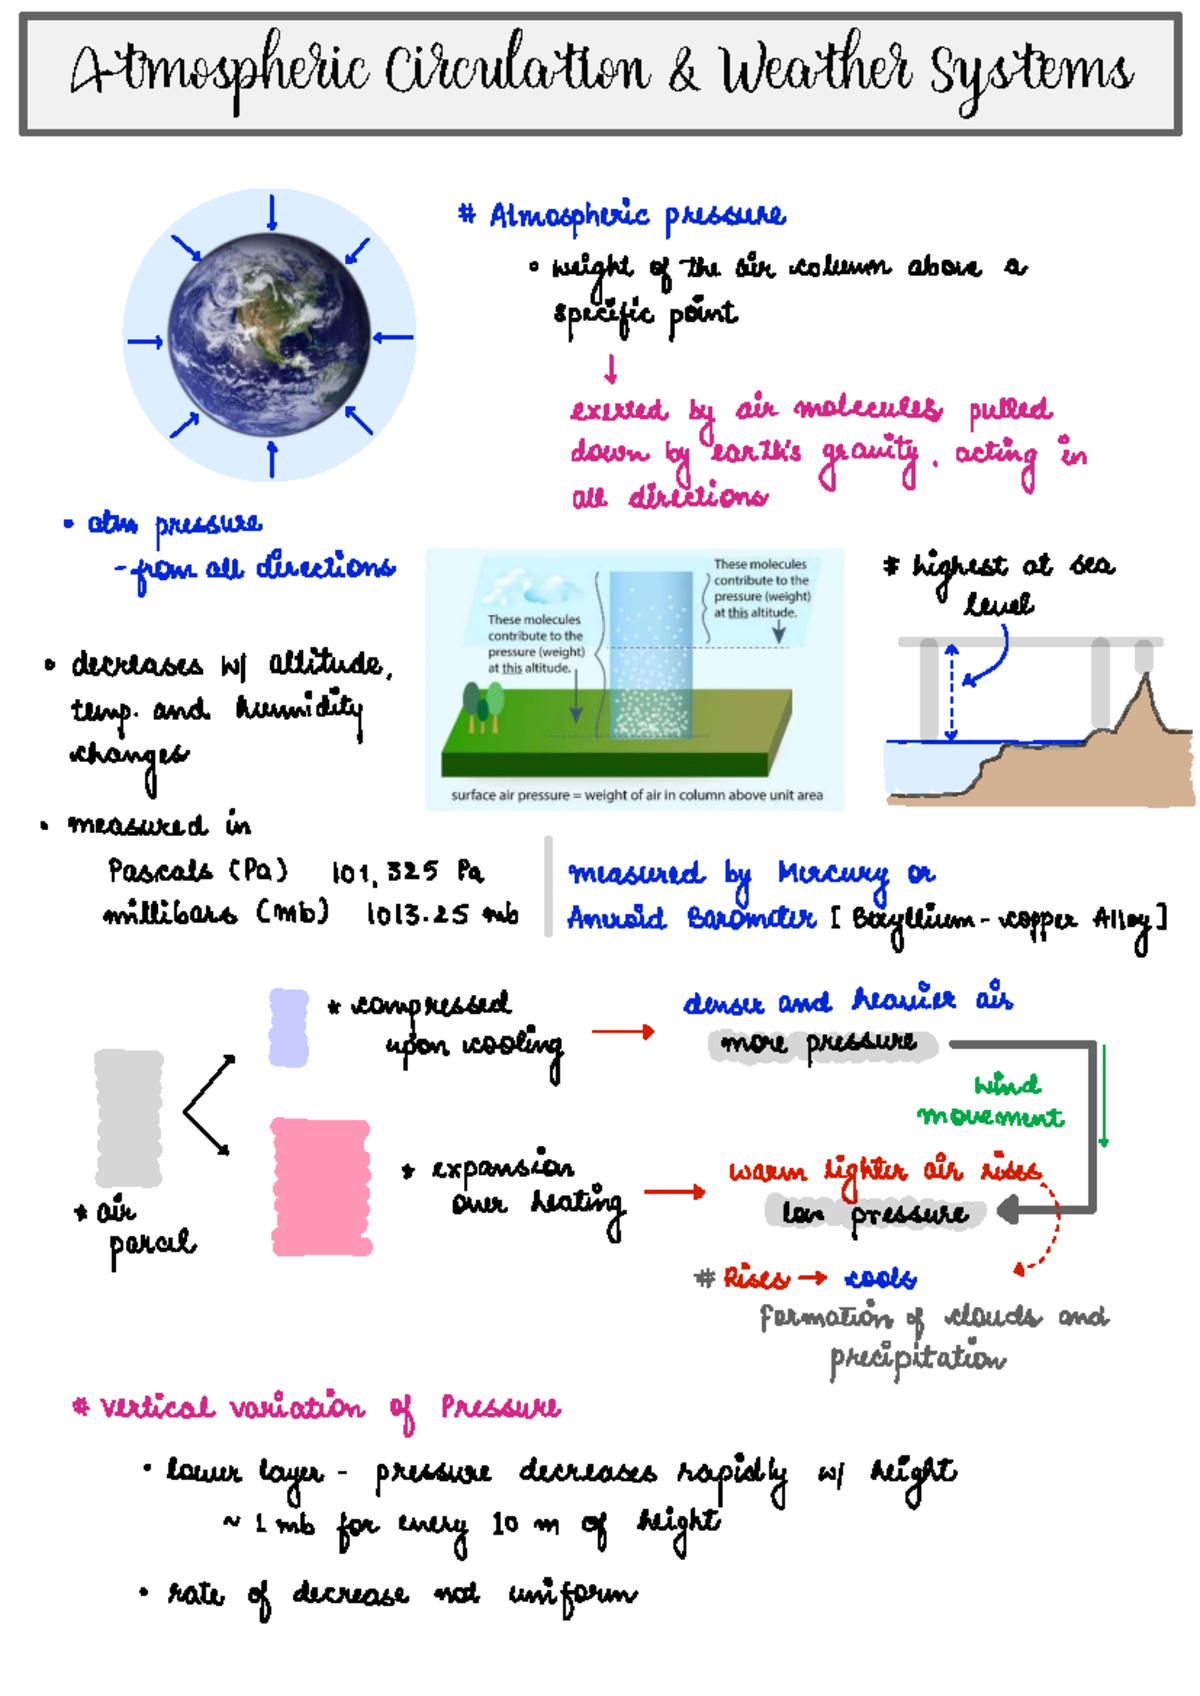 Atmospheric Circulation & Weather Systems
# Atmospheric pressure
• weight of the air column above a
specific point
↓
exerted by air molecules pulled
down by earth's gravity, acting in
all directions
• atm pressure
- from all directions
These molecules
contribute to the
pressure (weight)
at this altitude.
These molecules
contribute to the
pressure (weight)
at this altitude.
surface air pressure = weight of air in column above unit area
# highest at sea
level
• decreases w/ altitude,
temp. and humidity
changes
• measured in
Pascals (Pa) 101,325 Pa
millibars (mb) 1013.25 mb
measured by Mercury or
Aneroid Barometer [Beryllium-copper Alloy]
* air
parcel
* compressed
upon cooling
→ denser and heavier air
more pressure
wind
movement
* expansion
over heating
→ warm lighter air rises
low pressure
# Rises → cools
formation of clouds and
precipitation
# vertical variation of Pressure
• lower layer - pressure decreases rapidly w/ height
~ 1 mb for every 10 m of height
• rate of decrease not uniform